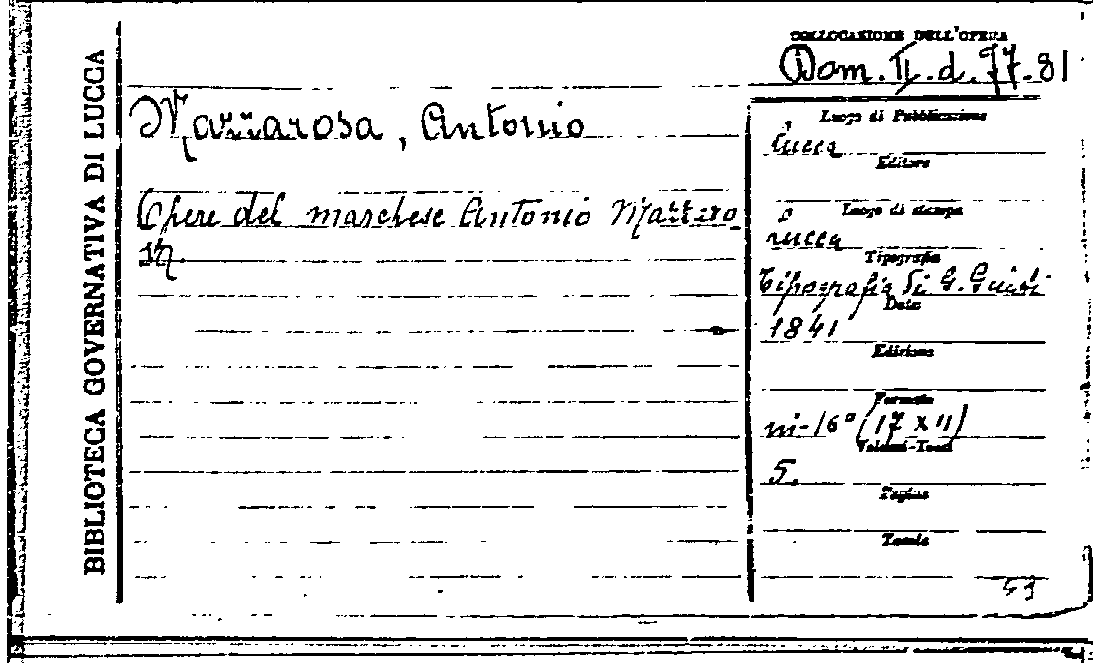 BIBLIOTECA GOVERNATIVA DI LUCCA
COLLOCAZIONE DELL'OPERA
Dom. II. d. 77.81
Mazzarosa, Antonio
Opere del marchese Antonio Mazzaro_
sa.
Luogo di Pubblicazione
Lucca
Editore
Luogo di stampa
Lucca
Tipografia
Tipografia di G. Giusti
Data
1841
Edizione
Formato
in-16° (17 x 11)
Volumi-Tomi
5.
Pagine
Tavole